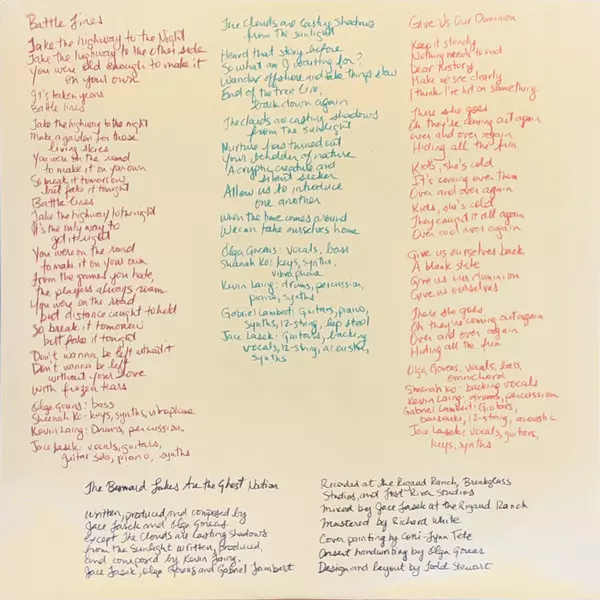 Battle Lines
Take the highway to the Night
Take the highway to the other side
You were old enough to make it
on your own
It's taken years
Battle lines
Take the highway to the night
Make a garden for those
living skies
You were on the road
to make it on your own
So break it tomorrow
but fake it tonight
Battle lines
Take the highway to the night
It's the only way to
get it right
You were on the road
to make it on your own
From the games you hate,
the players always roam
You were on the road
but distance caught to hold
So break it tomorrow
but fake it tonight
Don't wanna be left without it
Don't wanna be left
without your love
With frozen tears
Olga Goreas: bass
Sheenah Ko: keys, synths, vibraphone
Kevin Laing: Drums, percussion.
Jace Lasek: vocals, guitars,
guitar solo, piano, synths
The Clouds are Casting Shadows
from the sunlight
Heard that story before
So what am I waiting for?
Wander offshore and take things slow
End of the tree line,
back down again
The clouds are casting shadows
from the sunlight
Nurture has turned out
Your beholder of nature
A cryptic creature and
silent seeker
Allow us to introduce
one another
When the time comes around
We can take ourselves home
Olga Goreas: vocals, bass
Sheenah Ko: keys, synths,
vibraphone
Kevin Laing: drums, percussion,
piano, synths
Gabriel Lambert: Guitars, piano,
synths, 12-string, lap steel
Jace Lasek: Guitars, backing
vocals, 12-string, acoustic,
synths
Give Us Our Dominion
Keep it steady
Nothing needs to end
Dear history
Make me see clearly
I think I've hit on something
There she goes
Oh they're coming out again
Over and over again
Hiding all the fun
Kids, she's cold
It's coming over them
Over and over again
Kids, she's cold
They caught it all again
Over and over again
Give us ourselves back
A blank slate
Give us our dominion
Give us ourselves
There she goes
Oh they're coming out again
Over and over again
Hiding all the fun
Olga Goreas, vocals, bass,
omnichord
Sheenah Ko: backing vocals
Kevin Laing: drums, percussion
Gabriel Lambert: Guitars,
bouzouki, 12-string, acoustic
Jace Lasek: vocals, guitars,
keys, synths
The Besnard Lakes Are the Ghost Nation
Written, produced and composed by
Jace Lasek and Olga Goreas
except The Clouds are Casting Shadows
from the Sunlight written, produced,
and composed by Kevin Laing,
Jace Lasek, Olga Goreas and Gabriel Lambert
Recorded at the Rigaud Ranch, Breakglass
Studios, and Lost River Studios
Mixed by Jace Lasek at the Rigaud Ranch
Mastered by Richard White
Cover painting by Corri-Lynn Tetz
Onsert handwriting by Olga Goreas
Design and layout by Todd Stewart